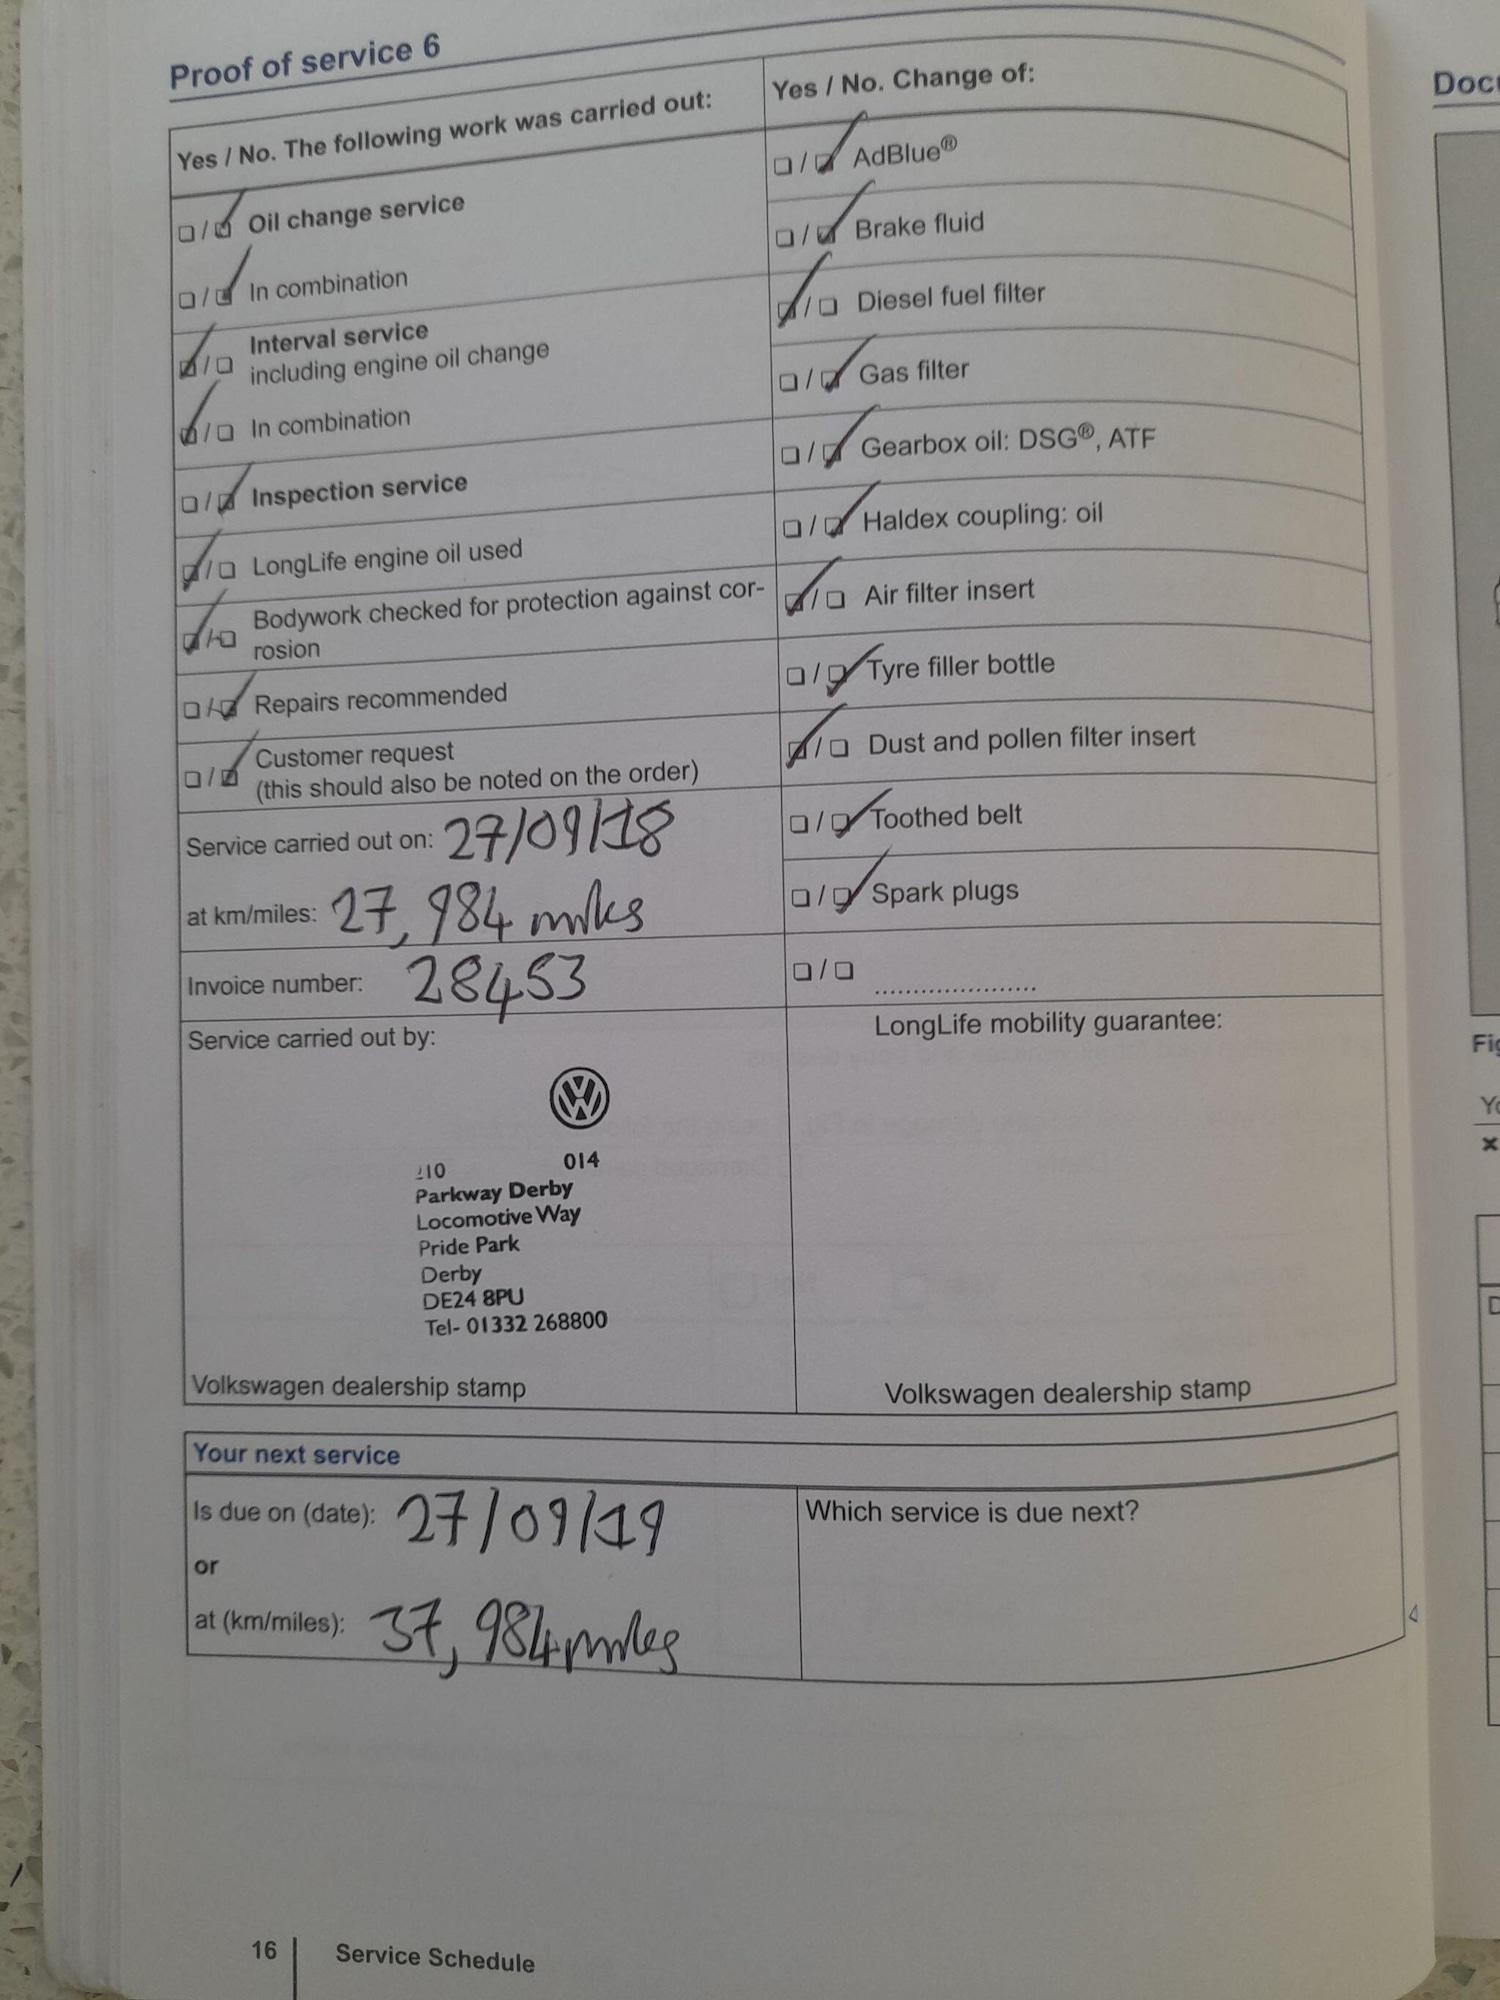 Proof of service 6
Yes / No. The following work was carried out:
Oil change service
In combination
Interval service
including engine oil change
In combination
Inspection service
LongLife engine oil used
Bodywork checked for protection against cor-
rosion
Repairs recommended
Customer request
(this should also be noted on the order)
Service carried out on: 27/09/18
at km/miles: 27,984 miles
Invoice number: 28453
Service carried out by:
014
Parkway Derby
Locomotive Way
Pride Park
Derby
DE24 8PU
Tel- 01332 268800
Volkswagen dealership stamp
Yes / No. Change of:
AdBlue®
Brake fluid
Diesel fuel filter
Gas filter
Gearbox oil: DSG®, ATF
Haldex coupling: oil
Air filter insert
Tyre filler bottle
Dust and pollen filter insert
Toothed belt
Spark plugs
LongLife mobility guarantee:
Volkswagen dealership stamp
Your next service
Is due on (date): 27/09/19
or
at (km/miles): 37,984 miles
Which service is due next?
16 Service Schedule